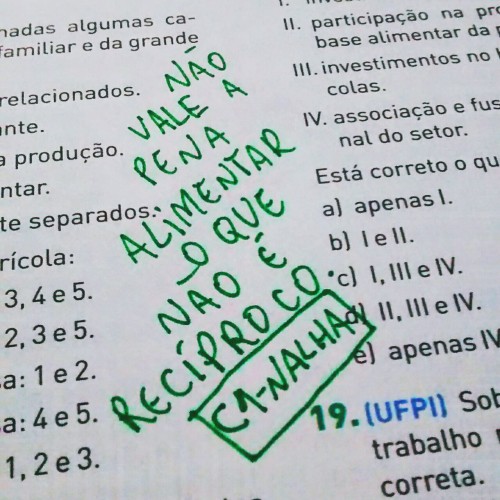 nadas algumas ca-
familiar e da grande
relacionados.
ante.
a produção.
ntar.
te separados:
rícola:
3, 4 e 5.
2, 3 e 5.
a: 1 e 2.
a: 4 e 5.
1, 2 e 3.
NÃO
VALE A
PENA
ALIMENTAR
O QUE
NÃO É
RECÍPROCO.
CA-NALHA
II. participação na pro
base alimentar da p
III. investimentos no
colas.
IV. associação e fus
nal do setor.
Está correto o qu
a) apenas I.
b) I e II.
c) I, III e IV.
d) II, III e IV.
e) apenas IV
19. (UFPI) Sob
trabalho
correta.